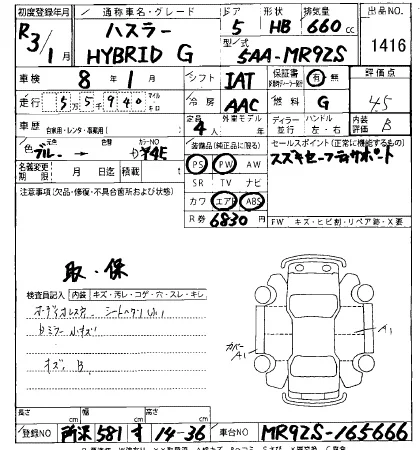 初度登録年月 通称車名・グレード ドア 形状 排気量 出品NO
R3/1月 ハスラー HYBRID G 5 HB 660cc 1416
型式 5AA-MR92S
車検 8年1月 シフト IAT 保証書 有 無 評価点
走行 5万5千940 マイル キロ 冷房 AAC 燃料 G 4.5
車歴 自家用・レンタ・事業用 定員 4人 外車モデル ディーラー 並行 ハンドル 左・右 内装評価 B
色 元色 ブルー → 色替 カラーNO 装備品(純正品に限る) セールスポイント(正常に機能するもの)
名義変更期限 月 日迄 積載 PS PW AW スズキセーフティサポート
注意事項(欠品・修復・不具合箇所および状態) SR TV ナビ
カワ エアB ABS
R券 6830円 FW キズ・ヒビ割・リペア跡・X要
取・保
検査員記入 内装 キズ・汚レ・コゲ・穴・スレ・キレ
オーディオレス
キズ、B
カバー A1
A1
長さ cm 幅 cm 高さ cm
登録NO 所沢 581 す 14-36 車台NO MR92S-165666